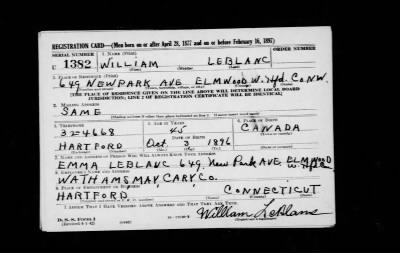 REGISTRATION CARD—(Men born on or after April 28, 1877 and on or before February 16, 1897)
SERIAL NUMBER 1. NAME (Print) ORDER NUMBER
U 1382 WILLIAM LEBLANC
2. PLACE OF RESIDENCE (Print)
649 NEW PARK AVE ELMWOOD W. Htfd. CONN.
[THE PLACE OF RESIDENCE GIVEN ON THE LINE ABOVE WILL DETERMINE LOCAL BOARD
JURISDICTION; LINE 2 OF REGISTRATION CERTIFICATE WILL BE IDENTICAL]
3. MAILING ADDRESS
SAME
4. TELEPHONE 5. AGE IN YEARS 6. PLACE OF BIRTH
32-4668 45 CANADA
DATE OF BIRTH
HARTFORD Oct. 3 1896
7. NAME AND ADDRESS OF PERSON WHO WILL ALWAYS KNOW YOUR ADDRESS
EMMA LEBLANC 649 New Park AVE ELMWOOD
8. EMPLOYER'S NAME AND ADDRESS
WATHAMS, MAY, CARY, Co.
9. PLACE OF EMPLOYMENT OR BUSINESS
HARTFORD CONNECTICUT
I AFFIRM THAT I HAVE VERIFIED ABOVE ANSWERS AND THAT THEY ARE TRUE.
D. S. S. Form 1
William LeBlanc